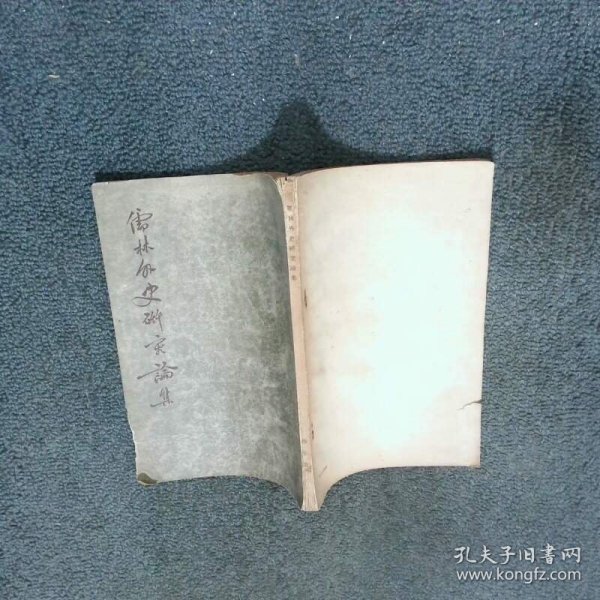 儒林外史研究論集
儒林外史研究論集
孔夫子旧書网
www.kongfz.com